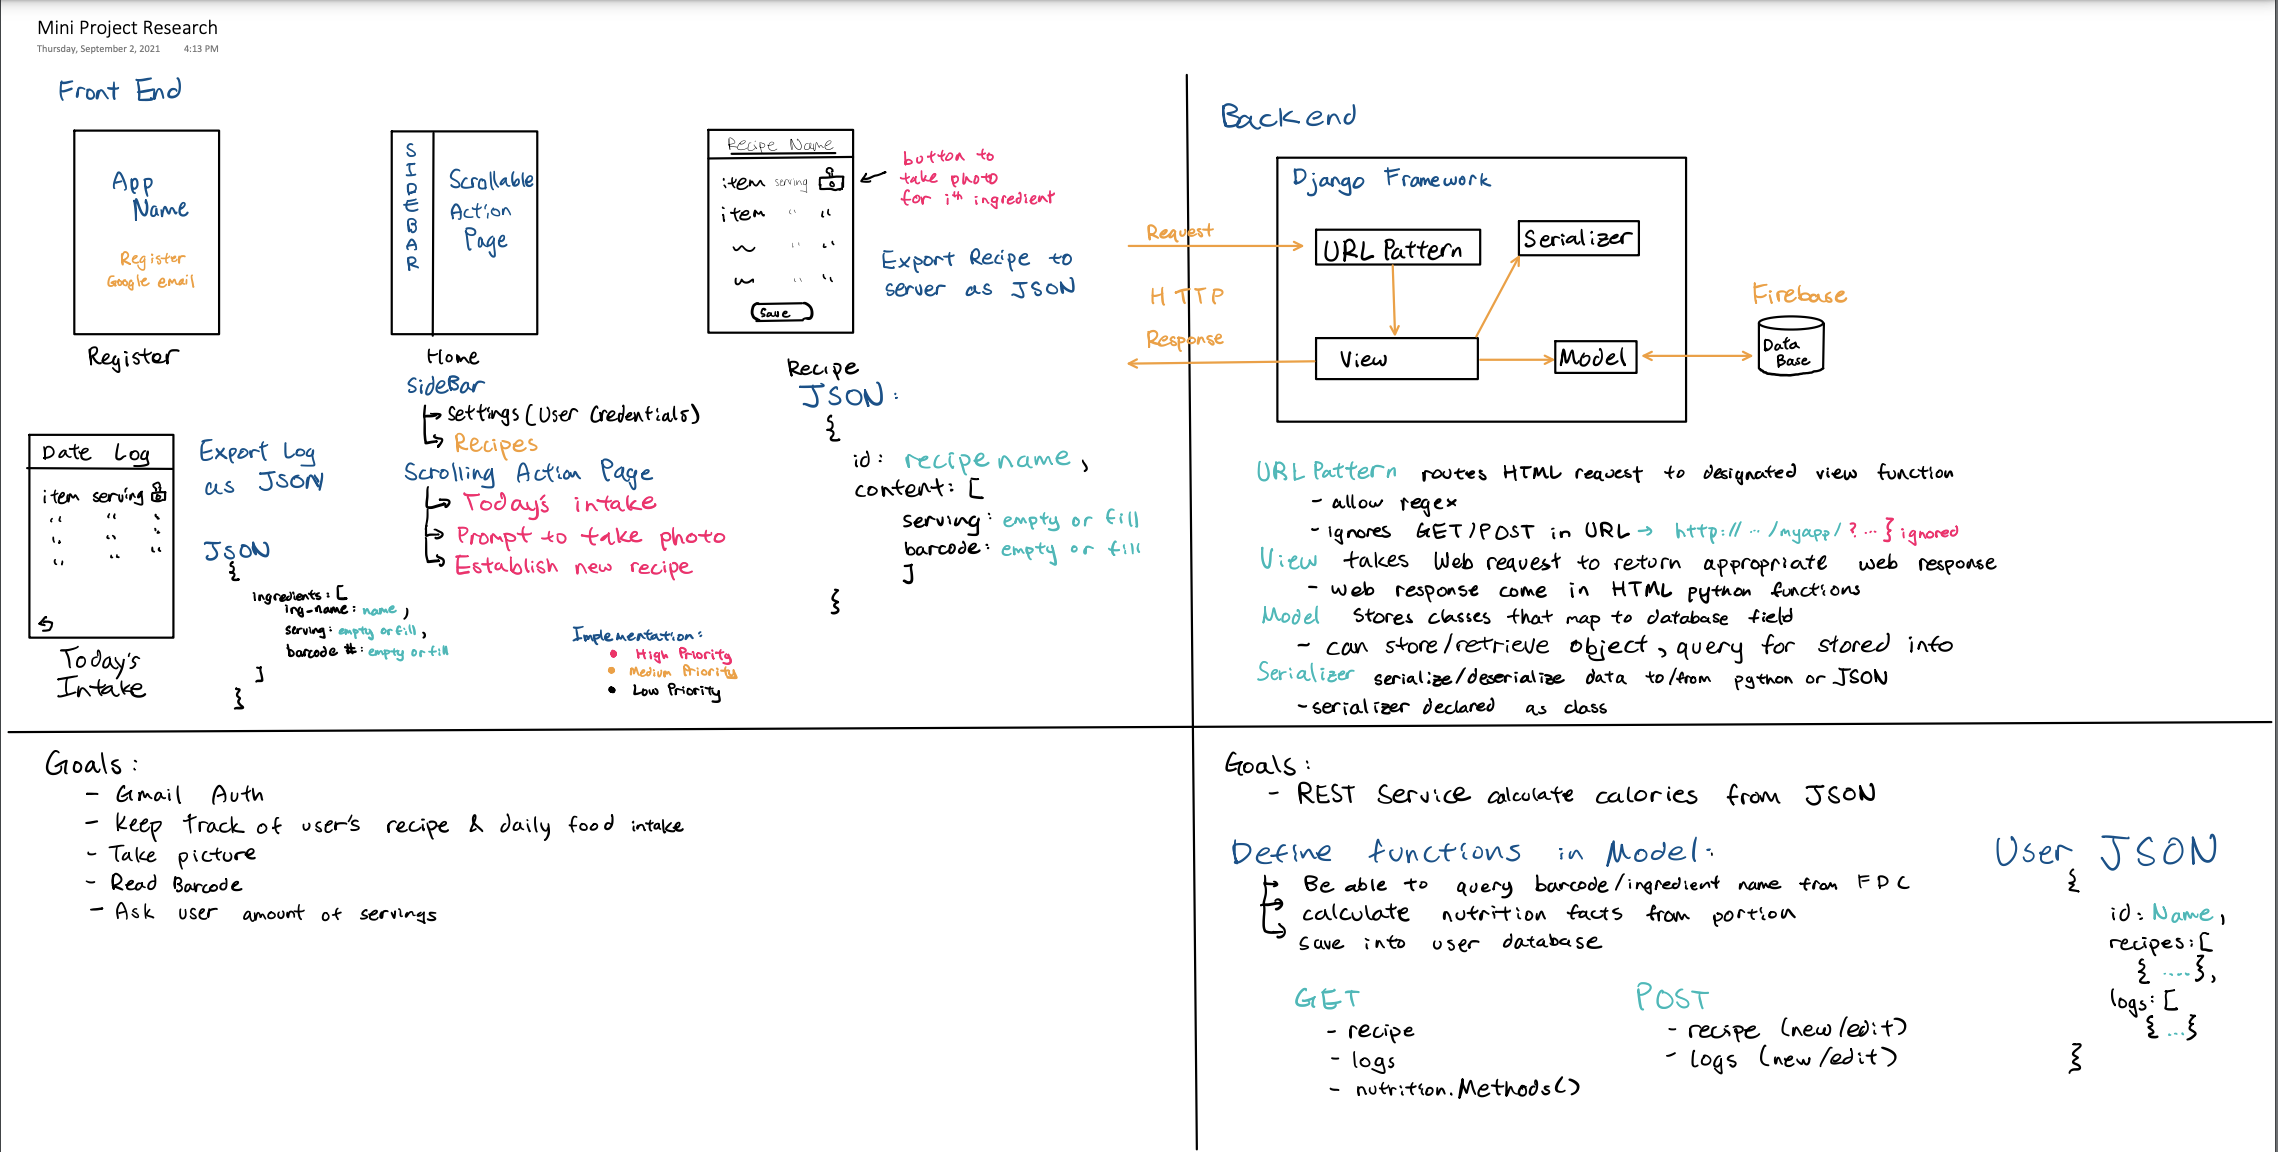 Mini Project Research
Thursday, September 2, 2021 4:13 PM
Front End
App
Name
Register
Google email
Register
SIDEBAR
Scrollable
Action
Page
Home
SideBar
Settings (User Credentials)
Recipes
Scrolling Action Page
Today's intake
Prompt to take photo
Establish new recipe
Recipe Name
item serving
item " "
" "
" "
Save
button to
take photo
for ith ingredient
Export Recipe to
server as JSON
Recipe
JSON:
{
id: recipe name,
content: [
serving: empty or fill
barcode: empty or fill
]
}
Date Log
item serving
" " "
" " "
" " "
" "
Today's
Intake
Export Log
as JSON
JSON
{
Ingredients: [
ing-name: name,
serving: empty or fill,
barcode #: empty or fill
]
}
Implementation:
• High Priority
• Medium Priority
• Low Priority
Goals:
- Gmail Auth
- Keep track of user's recipe & daily food intake
- Take picture
- Read Barcode
- Ask user amount of servings
Backend
Django Framework
Request
HTTP
Response
URL Pattern
Serializer
View
Model
Firebase
Data
Base
URL Pattern routes HTML request to designated view function
- allow regex
- ignores GET/POST in URL → http:// ... /myapp/ ? ... } ignored
View takes Web request to return appropriate web response
- web response come in HTML python functions
Model Stores classes that map to database field
- can store/retrieve object, query for stored into
Serializer serialize/deserialize data to/from python or JSON
- serializer declared as class
Goals:
- REST Service calculate calories from JSON
Define functions in Model:
Be able to query barcode/ingredient name from FDC
calculate nutrition facts from portion
save into user database
GET
- recipe
- logs
- nutrition.Methods()
POST
- recipe (new/edit)
- logs (new/edit)
User JSON
{
id: Name,
recipes: [
{ ..... },
logs: [
{ ... }
}